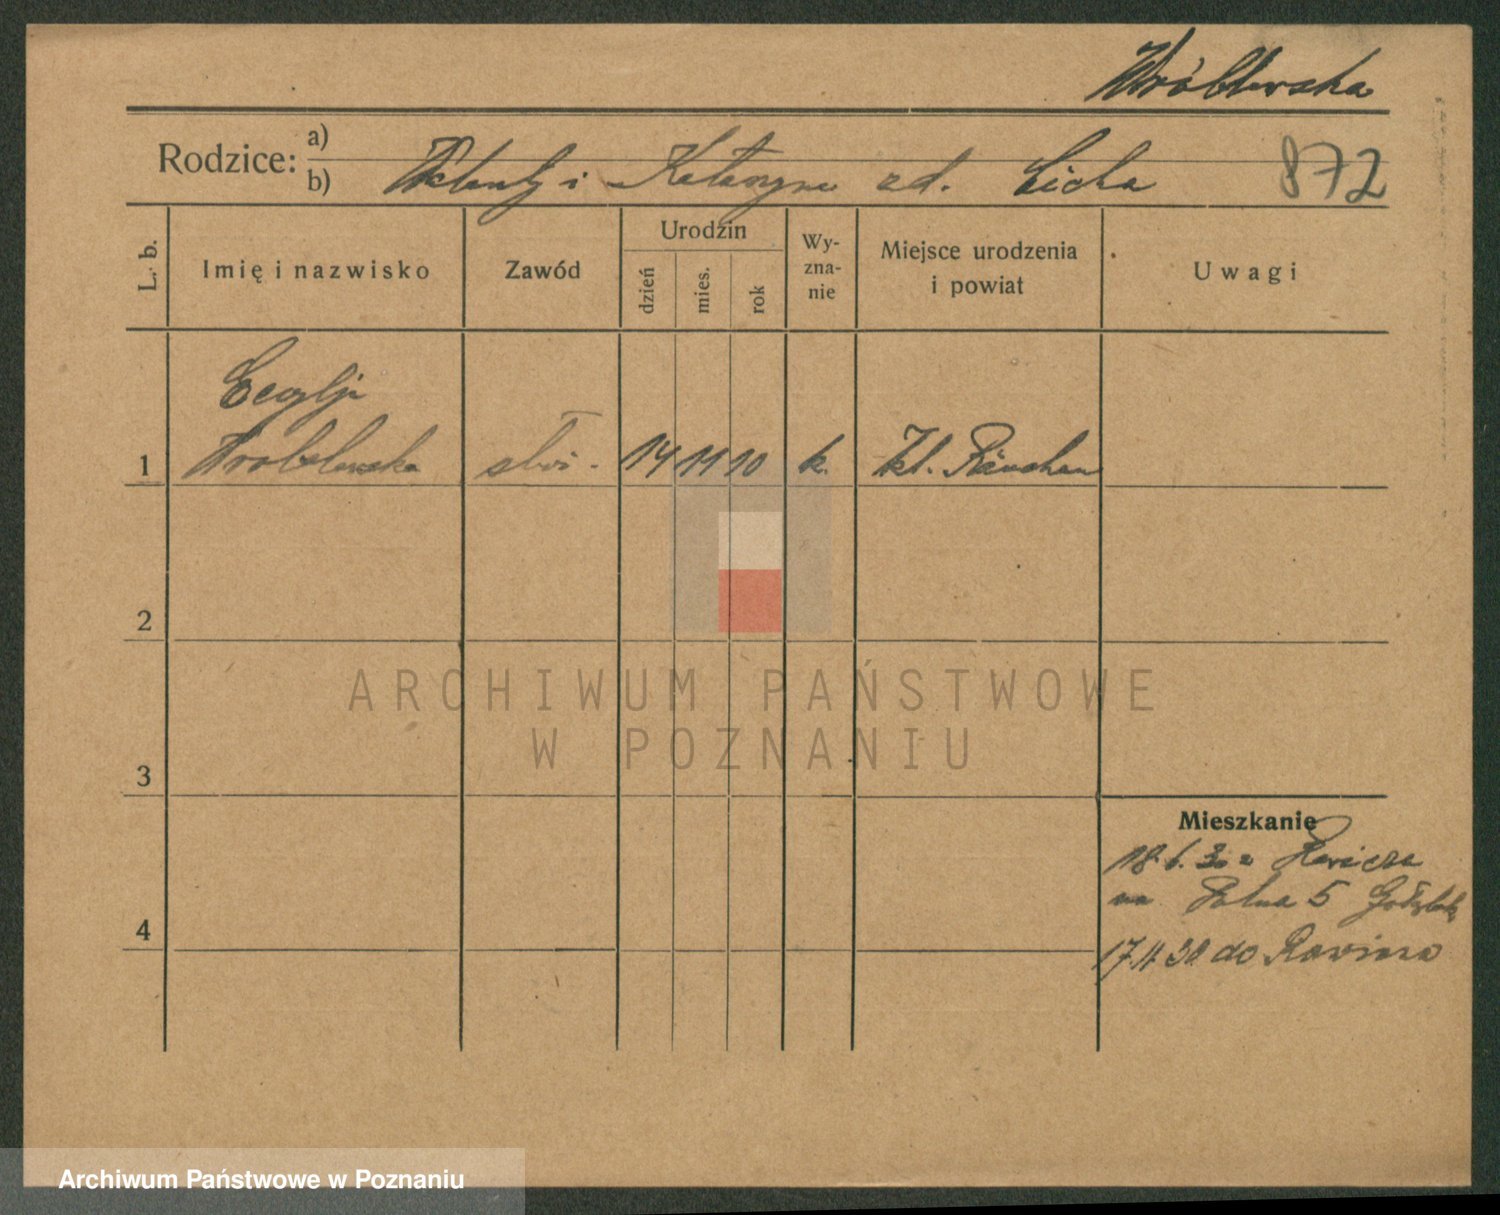 Wróblewska
Rodzice: a)
b) i Katarzyna zd. Cicha 872
L. b. Imię i nazwisko Zawód Urodzin dzień mies. rok Wy-zna-nie Miejsce urodzenia i powiat Uwagi
Cecylja
1 Wroblewska 14 11 10 k. Kl.
2
3
4
Mieszkanie
18.6.30 z Rawicza
na Polna 5
17.11.30 do Rawicza
ARCHIWUM PAŃSTWOWE
W POZNANIU
Archiwum Państwowe w Poznaniu